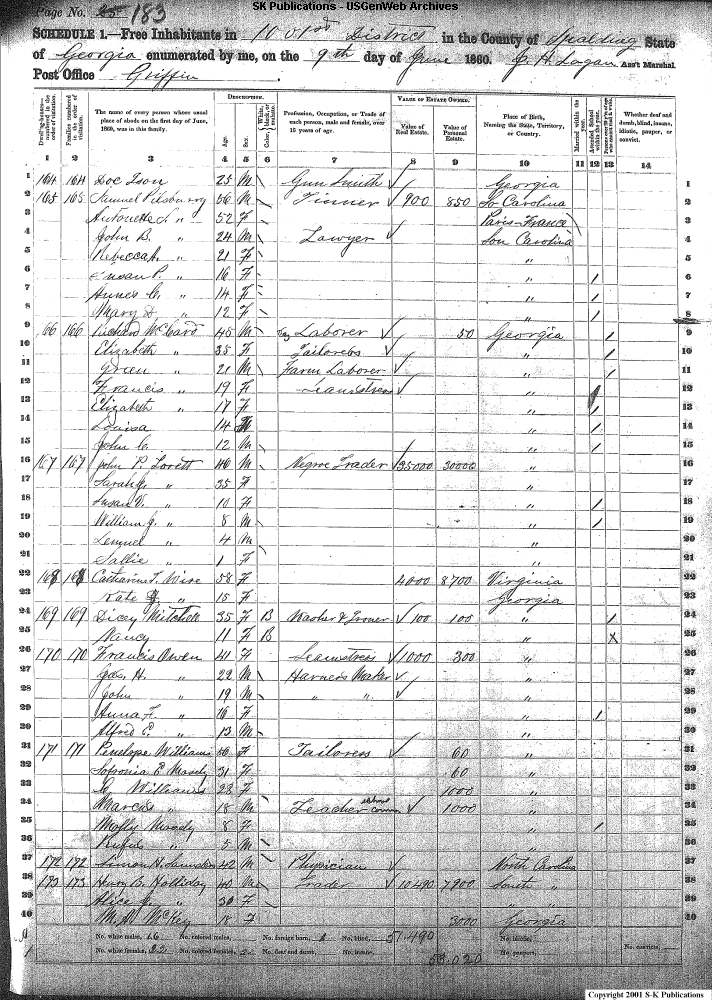 SK Publications - USGenWeb Archives
Page No. 25 183
SCHEDULE 1.—Free Inhabitants in 1001st District in the County of Spalding State
of Georgia enumerated by me, on the 9th day of June 1860. Ass't Marshal.
Post Office Griffin
DESCRIPTION. VALUE OF ESTATE OWNED.
Dwelling-houses— numbered in the order of visitation. Families numbered in the order of visitation. The name of every person whose usual place of abode on the first day of June, 1860, was in this family. Age. Sex. Color, White, black, or mulatto. Profession, Occupation, or Trade of each person, male and female, over 15 years of age. Value of Real Estate. Value of Personal Estate. Place of Birth, Naming the State, Territory, or Country. Married within the year. Attended School within the year. Whether deaf and dumb, blind, insane, idiotic, pauper, or convict.
1 2 3 4 5 6 7 8 9 10 11 12 13 14
1 164 164 Doc Ison 25 M Gun Smith Georgia
2 165 165 Samuel 56 M Tinner 900 850 So Carolina 2
3 " 52 F Paris France 3
4 John B. " 24 M Lawyer Sou Carolina 4
5 Rebecca " 21 F " 5
6 Susan P. " 16 F " / 6
7 " 14 F " / 7
8 Mary " 12 F " / 8
9 166 166 Richard McCard 45 M Day Laborer 50 Georgia / 9
10 Elizabeth " 35 F Tailoress " / 10
11 Green " 21 M Farm Laborer " / 11
12 Francis " 19 F Seamstress " 12
13 Elizabeth " 17 F " / 13
14 Louisa 14 F " / 14
15 John C. " 12 M " / 15
16 167 167 John P. Lovett 40 M Negroe Trader 35000 30000 " 16
17 Sarah " 35 F " 17
18 Susan V. " 10 F " / 18
19 William J. " 8 M " / 19
20 Lemuel " 4 M " 20
21 Sallie " 1 F " 21
22 168 168 Catharine T. Wise 58 F 4000 8700 Virginia 22
23 Kate " 15 F Georgia 23
24 169 169 Dicey Mitchell 35 F B Washer & Ironer 100 100 " / 24
25 Nancy 11 F B " X 25
26 170 170 Francis Owen 41 F Seamstress 1000 300 " 26
27 H. " 22 M Harness Maker " 27
28 John " 19 M " " " 28
29 Anna F. " 16 F " / 29
30 Alfred " 13 M " 30
31 171 171 Penelope Williams F Tailoress 60 " 31
32 Sofronia E Mosely 31 F 60 " 32
33 Williams 23 F 1000 " 33
34 Marcus " 18 M Teacher school com 1000 " 34
35 Molly Mosely 8 F " / 35
36 Rufus " 5 M " 36
37 172 172 Simon H. Saunders 42 M Physician North Carolina 37
38 173 173 Henry B. Holliday 40 M Trader 10490 7900 South " 38
39 Alice J. " 30 F " " 39
40 McKey 18 F 3000 Georgia 40
No. white males, 16 No. colored males, No. foreign born, 1 No. blind, 51.490 No. idiotic,
No. white females, 22 No. colored females, 2 No. deaf and dumb, No. insane, 53.020 No. paupers, No. convicts,
Copyright 2001 S-K Publications